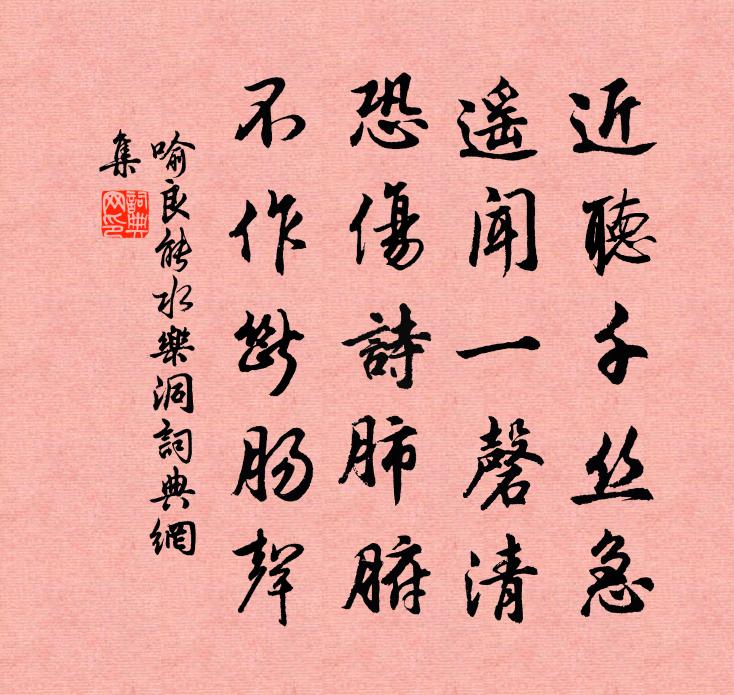 近聽千丝急
遥闻一磬清
恐傷詩肺腑
不作斷肠聲
喻良能水樂洞詞典網
集
詞典网印